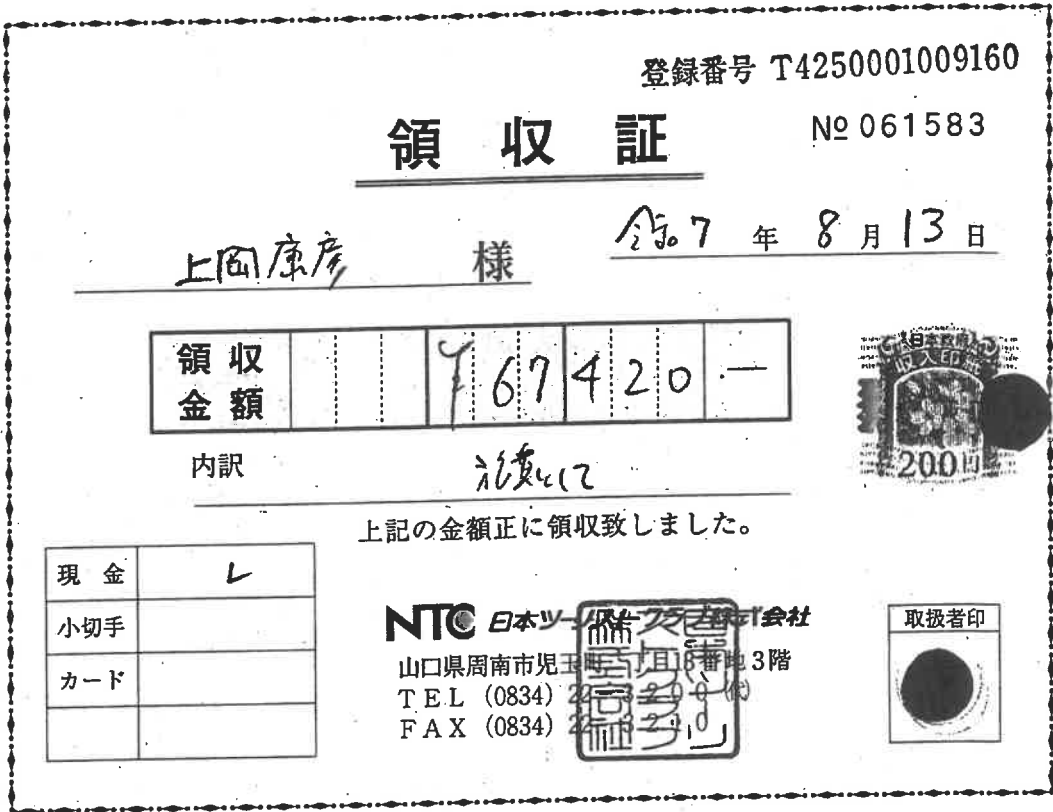 登録番号 T4250001009160
領収証
№ 061583
上岡康彦 様
令和7年8月13日
領収金額 ¥67420-
日本政府
収入印紙
200円
内訳 旅費として
上記の金額正に領収致しました。
現金 レ
小切手
カード
NTC 日本ツーリストクラブ株式会社
山口県周南市児玉町 丁目13番地3階
TEL (0834) 22-3200 (代)
FAX (0834) 22-3210
取扱者印